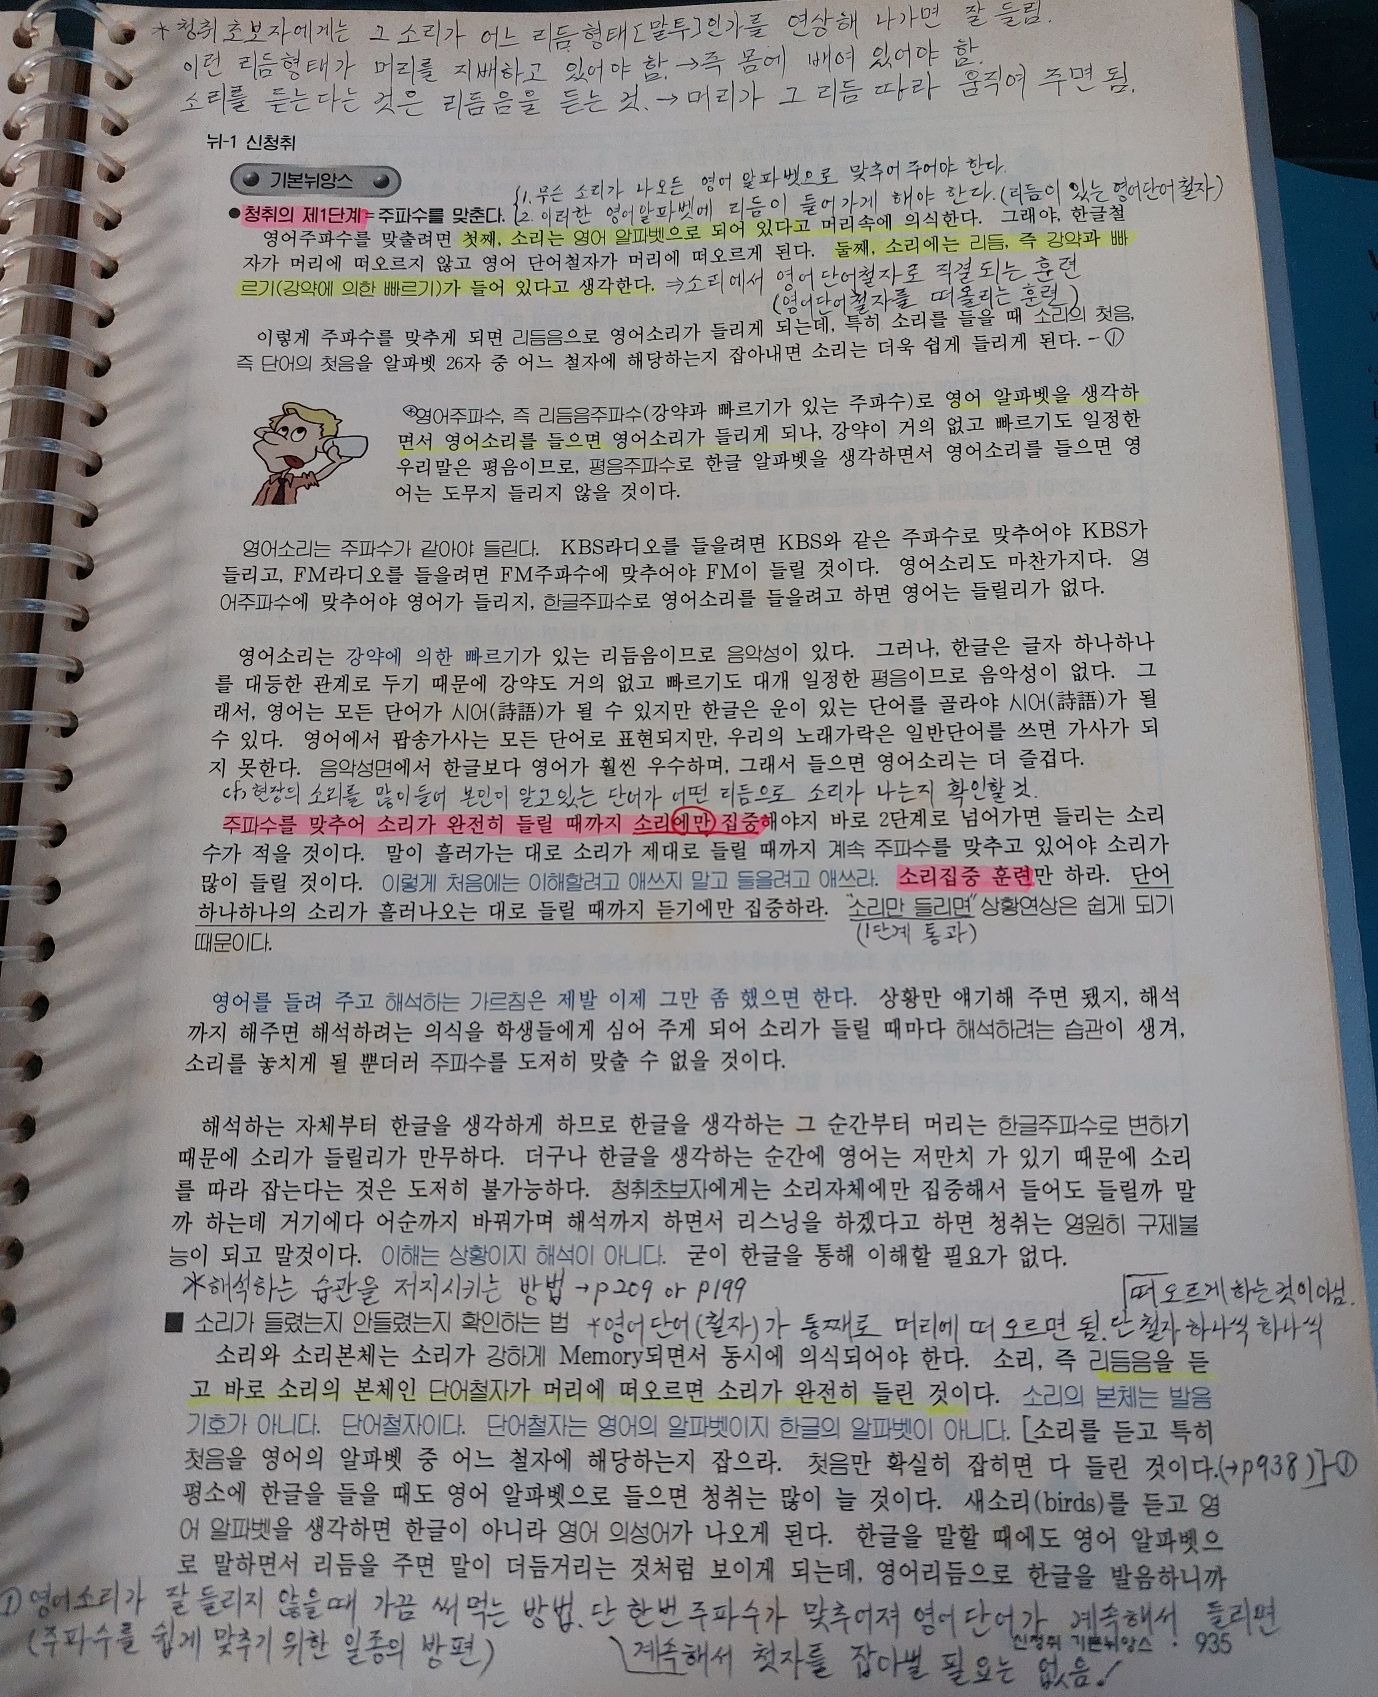 * 청취초보자에게는 그 소리가 어느 리듬형태[말투]인가를 연상해 나가면 잘 들림.
이런 리듬형태가 머리를 지배하고 있어야 함. → 즉 몸에 배여 있어야 함.
소리를 듣는다는 것은 리듬음을 듣는 것. → 머리가 그 리듬 따라 움직여 주면 됨.
뉘-1 신청취
기본뉘앙스
1. 무슨 소리가 나오든 영어 알파벳으로 맞추어 주어야 한다.
●청취의 제1단계=주파수를 맞춘다. 2. 이러한 영어알파벳에 리듬이 들어가게 해야 한다.(리듬이 있는 영어단어철자)
영어주파수를 맞출려면 첫째, 소리는 영어 알파벳으로 되어 있다고 머리속에 의식한다. 그래야, 한글철
자가 머리에 떠오르지 않고 영어 단어철자가 머리에 떠오르게 된다. 둘째, 소리에는 리듬, 즉 강약과 빠
르기(강약에 의한 빠르기)가 들어 있다고 생각한다. ⇒소리에서 영어단어철자로 직결되는 훈련
(영어단어철자를 떠올리는 훈련)
이렇게 주파수를 맞추게 되면 리듬음으로 영어소리가 들리게 되는데, 특히 소리를 들을 때 소리의 첫음,
즉 단어의 첫음을 알파벳 26자 중 어느 철자에 해당하는지 잡아내면 소리는 더욱 쉽게 들리게 된다. -①
영어주파수, 즉 리듬음주파수(강약과 빠르기가 있는 주파수)로 영어 알파벳을 생각하
면서 영어소리를 들으면 영어소리가 들리게 되나, 강약이 거의 없고 빠르기도 일정한
우리말은 평음이므로, 평음주파수로 한글 알파벳을 생각하면서 영어소리를 들으면 영
어는 도무지 들리지 않을 것이다.
영어소리는 주파수가 같아야 들린다. KBS라디오를 들을려면 KBS와 같은 주파수로 맞추어야 KBS가
들리고, FM라디오를 들을려면 FM주파수에 맞추어야 FM이 들릴 것이다. 영어소리도 마찬가지다. 영
어주파수에 맞추어야 영어가 들리지, 한글주파수로 영어소리를 들을려고 하면 영어는 들릴리가 없다.
영어소리는 강약에 의한 빠르기가 있는 리듬음이므로 음악성이 있다. 그러나, 한글은 글자 하나하나
를 대등한 관계로 두기 때문에 강약도 거의 없고 빠르기도 대개 일정한 평음이므로 음악성이 없다. 그
래서, 영어는 모든 단어가 시어(詩語)가 될 수 있지만 한글은 운이 있는 단어를 골라야 시어(詩語)가 될
수 있다. 영어에서 팝송가사는 모든 단어로 표현되지만, 우리의 노래가락은 일반단어를 쓰면 가사가 되
지 못한다. 음악성면에서 한글보다 영어가 훨씬 우수하며, 그래서 들으면 영어소리는 더 즐겁다.
cf) 현장의 소리를 많이들어 본인이 알고있는 단어가 어떤 리듬으로 소리가 나는지 확인할 것.
주파수를 맞추어 소리가 완전히 들릴 때까지 소리에만 집중해야지 바로 2단계로 넘어가면 들리는 소리
수가 적을 것이다. 말이 흘러가는 대로 소리가 제대로 들릴 때까지 계속 주파수를 맞추고 있어야 소리가
많이 들릴 것이다. 이렇게 처음에는 이해할려고 애쓰지 말고 들을려고 애쓰라. 소리집중 훈련만 하라. 단어
하나하나의 소리가 흘러나오는 대로 들릴 때까지 듣기에만 집중하라. "소리만 들리면" 상황연상은 쉽게 되기
때문이다.
(1단계 통과)
영어를 들려 주고 해석하는 가르침은 제발 이제 그만 좀 했으면 한다. 상황만 얘기해 주면 됐지, 해석
까지 해주면 해석하려는 의식을 학생들에게 심어 주게 되어 소리가 들릴 때마다 해석하려는 습관이 생겨,
소리를 놓치게 될 뿐더러 주파수를 도저히 맞출 수 없을 것이다.
해석하는 자체부터 한글을 생각하게 하므로 한글을 생각하는 그 순간부터 머리는 한글주파수로 변하기
때문에 소리가 들릴리가 만무하다. 더구나 한글을 생각하는 순간에 영어는 저만치 가 있기 때문에 소리
를 따라 잡는다는 것은 도저히 불가능하다. 청취초보자에게는 소리자체에만 집중해서 들어도 들릴까 말
까 하는데 거기에다 어순까지 바꿔가며 해석까지 하면서 리스닝을 하겠다고 하면 청취는 영원히 구제불
능이 되고 말것이다. 이해는 상황이지 해석이 아니다. 굳이 한글을 통해 이해할 필요가 없다.
*해석하는 습관을 저지시키는 방법 → p209 or p199
떠오르게 하는 것이 아님.
■ 소리가 들렸는지 안들렸는지 확인하는 법 *영어단어(철자)가 통째로 머리에 떠오르면 됨. 단 철자 하나씩 하나씩
소리와 소리본체는 소리가 강하게 Memory되면서 동시에 의식되어야 한다. 소리, 즉 리듬음을 듣
고 바로 소리의 본체인 단어철자가 머리에 떠오르면 소리가 완전히 들린 것이다. 소리의 본체는 발음
기호가 아니다. 단어철자이다. 단어철자는 영어의 알파벳이지 한글의 알파벳이 아니다. [소리를 듣고 특히
첫음을 영어의 알파벳 중 어느 철자에 해당하는지 잡으라. 첫음만 확실히 잡히면 다 들린 것이다.(→p938)]-①
평소에 한글을 들을 때도 영어 알파벳으로 들으면 청취는 많이 늘 것이다. 새소리(birds)를 듣고 영
어 알파벳을 생각하면 한글이 아니라 영어 의성어가 나오게 된다. 한글을 말할 때에도 영어 알파벳으
로 말하면서 리듬을 주면 말이 더듬거리는 것처럼 보이게 되는데, 영어리듬으로 한글을 발음하니까
① 영어소리가 잘 들리지 않을때 가끔 써먹는 방법. 단 한번 주파수가 맞추어져 영어단어가 계속해서 들리면
(주파수를 쉽게 맞추기 위한 일종의 방편) 계속해서 첫자를 잡아낼 필요는 없음!
신청취 기본뉘앙스 · 935